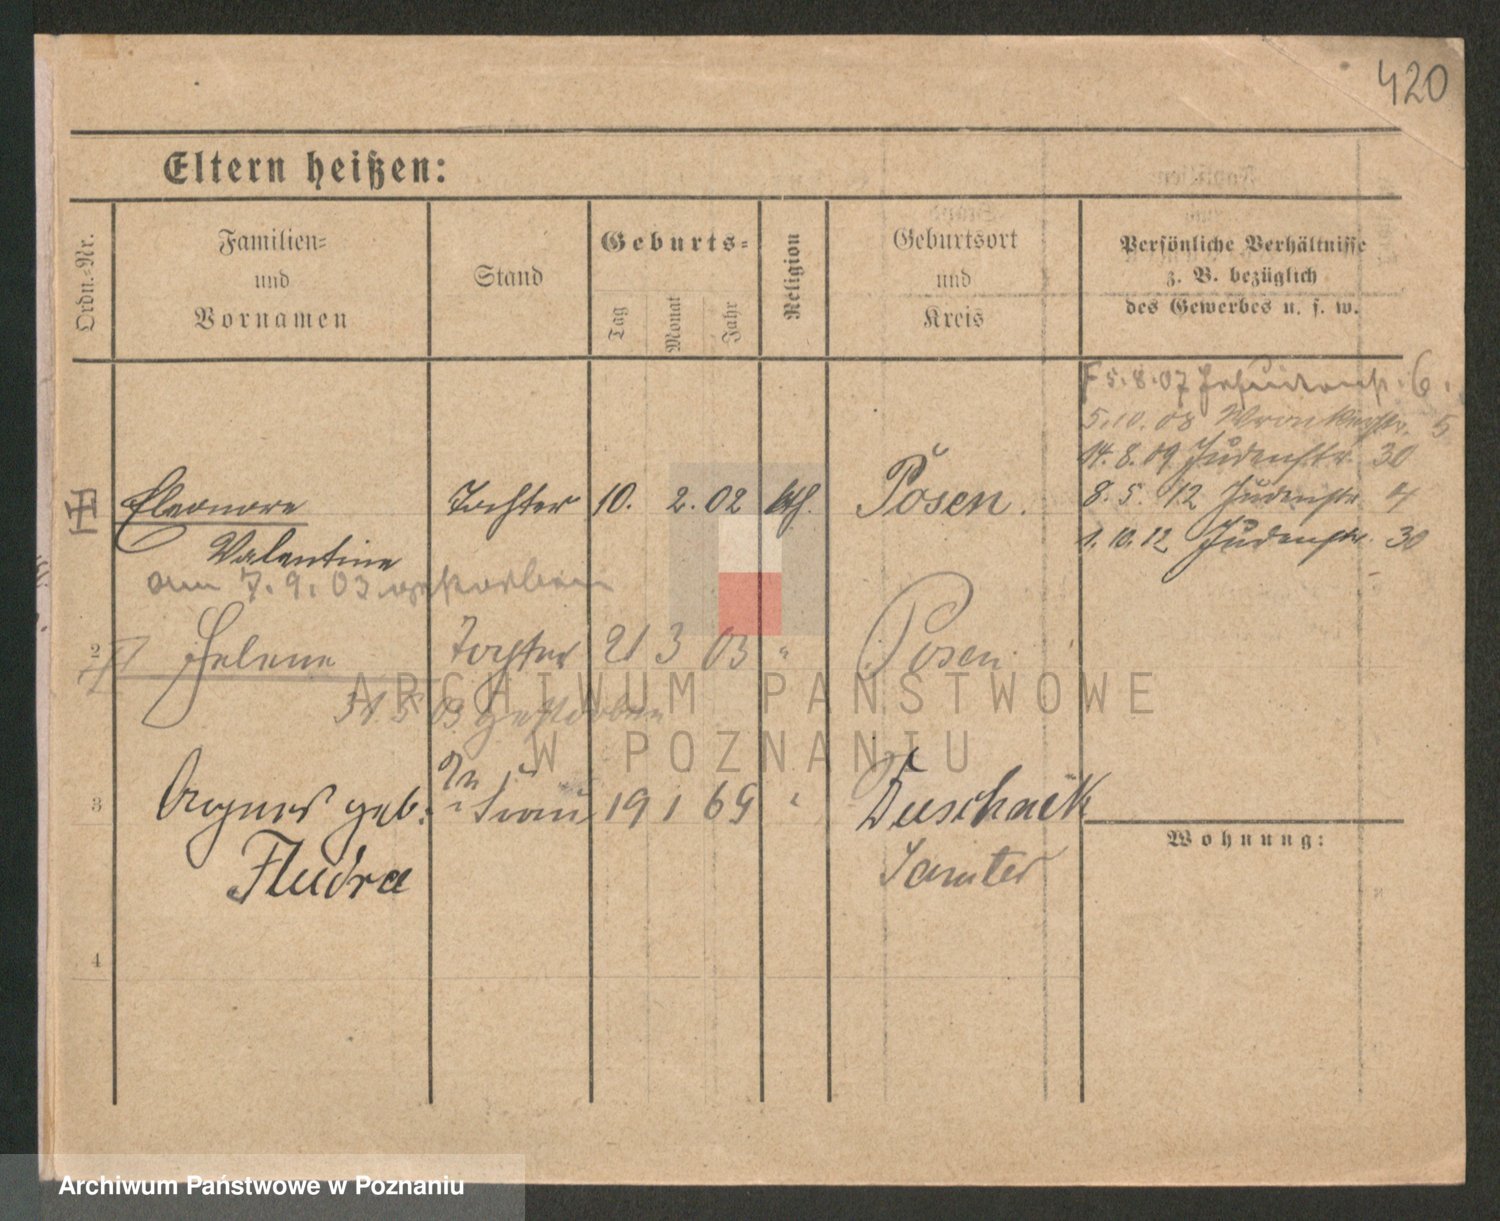 420
Eltern heißen:
Ordn.-Nr.
Familien=
und
Vornamen
Stand
Geburts=
Tag
Monat
Jahr
Religion
Geburtsort
und
Kreis
Persönliche Verhältnisse
z. B. bezüglich
des Gewerbes u. s. w.
5.8.07 Jesuitenstr. 6.
5.10.08 Wronkerstr. 5
14.8.09 Judenstr. 30
8.5.12 Judenstr. 4
1.10.12 Judenstr. 30
Eleonore Tochter 10. 2. 02 kth. Posen.
Valentine
am 7.9.03 gestorben
2 Helene Tochter 21 3 03 " Posen
31 5 03 gestorben
3 Agnes geb. Frau 19 1 69 " Duschnik
Fludra Samter
Wohnung:
4
ARCHIWUM PAŃSTWOWE
W POZNANIU
Archiwum Państwowe w Poznaniu